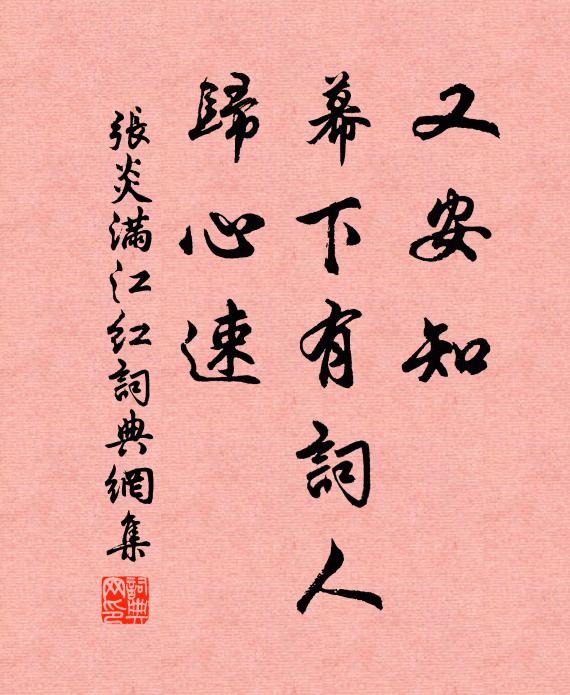 又安知
幕下有詞人
歸心速
張炎滿江红詞典網集
詞典网印